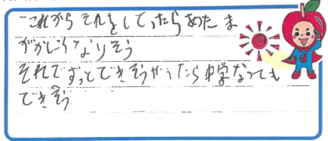 これから それをしてったらあたま
がかしこくなりそう
それでずっとできそうだったら中学なっても
できそう